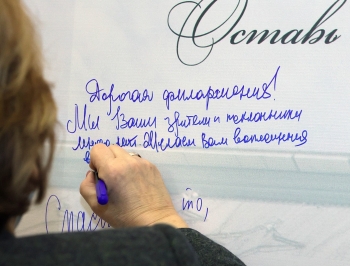 Оставь
Дорогая филармония!
Мы Ваши зрители и поклонники
желаем Вам воплощения
в
Спаси то,